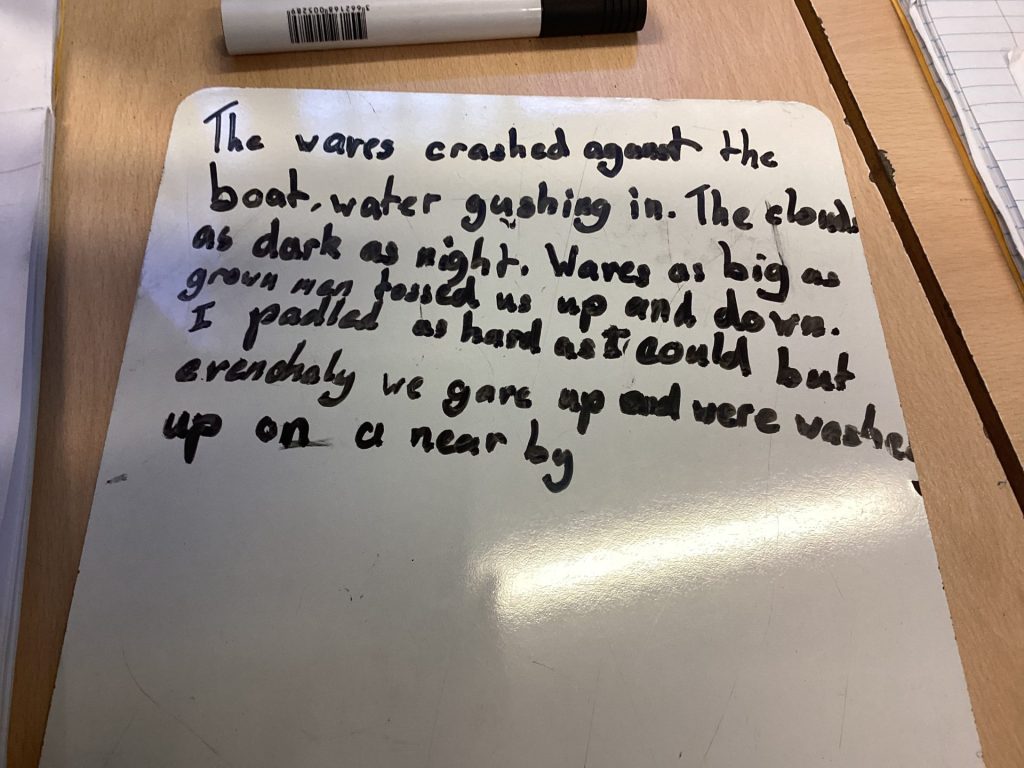 3662168005289
The waves crashed against the
boat, water gushing in. The clouds
as dark as night. Waves as big as
grown men tossed us up and down.
I padled as hard as I could but
evenchaly we gave up and were washed
up on a near by